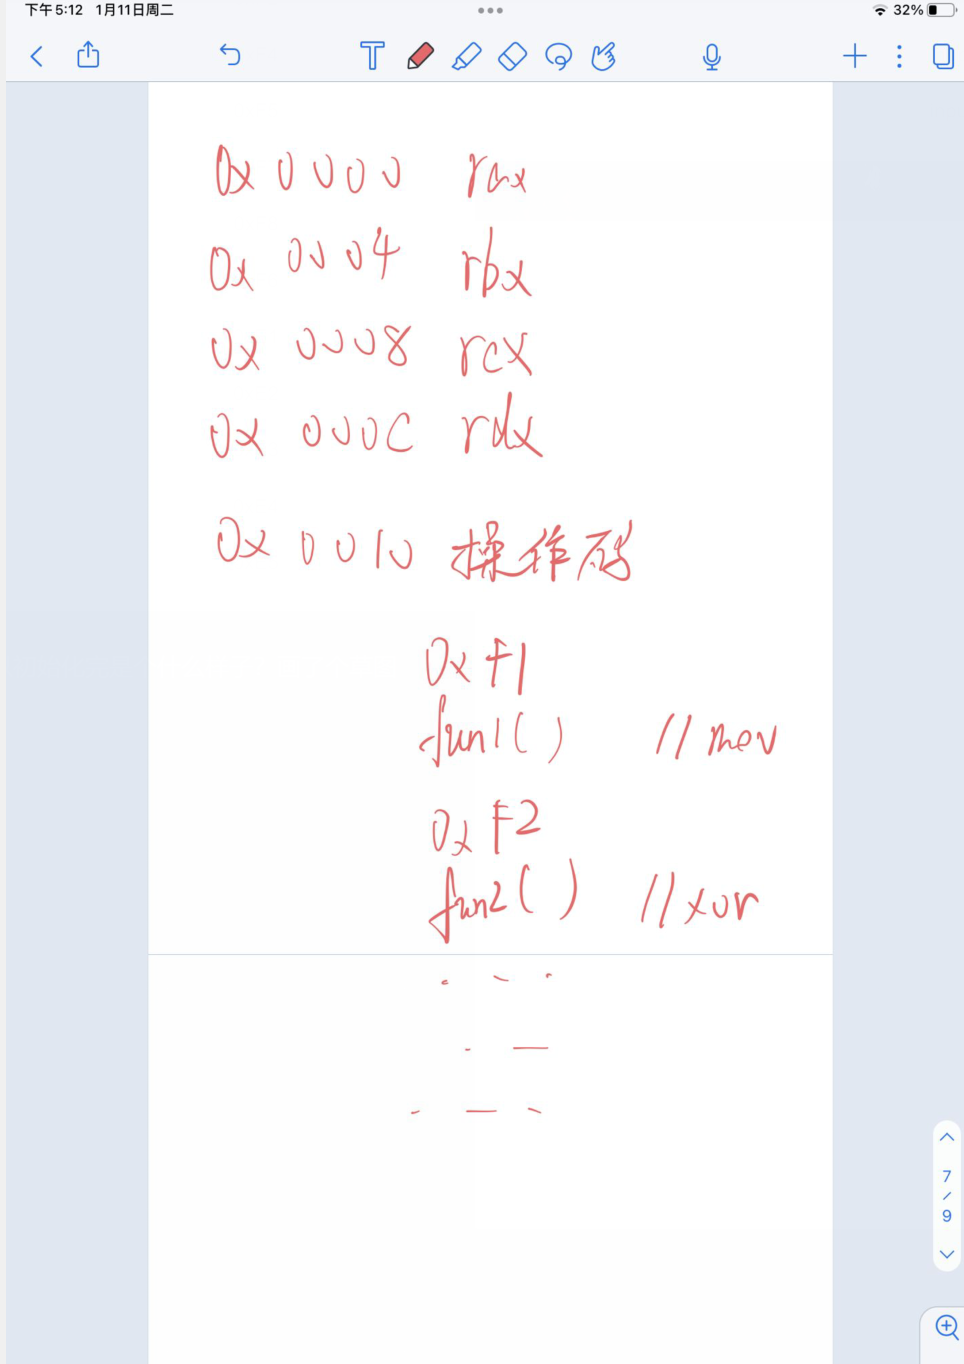 下午5:12 1月11日周二
32%
0x 0000 rax
0x 0004 rbx
0x 0008 rcx
0x 000C rdx
0x 0010 操作码
0x F1
fun1( ) // mov
0x F2
fun2( ) // xor
7
/
9